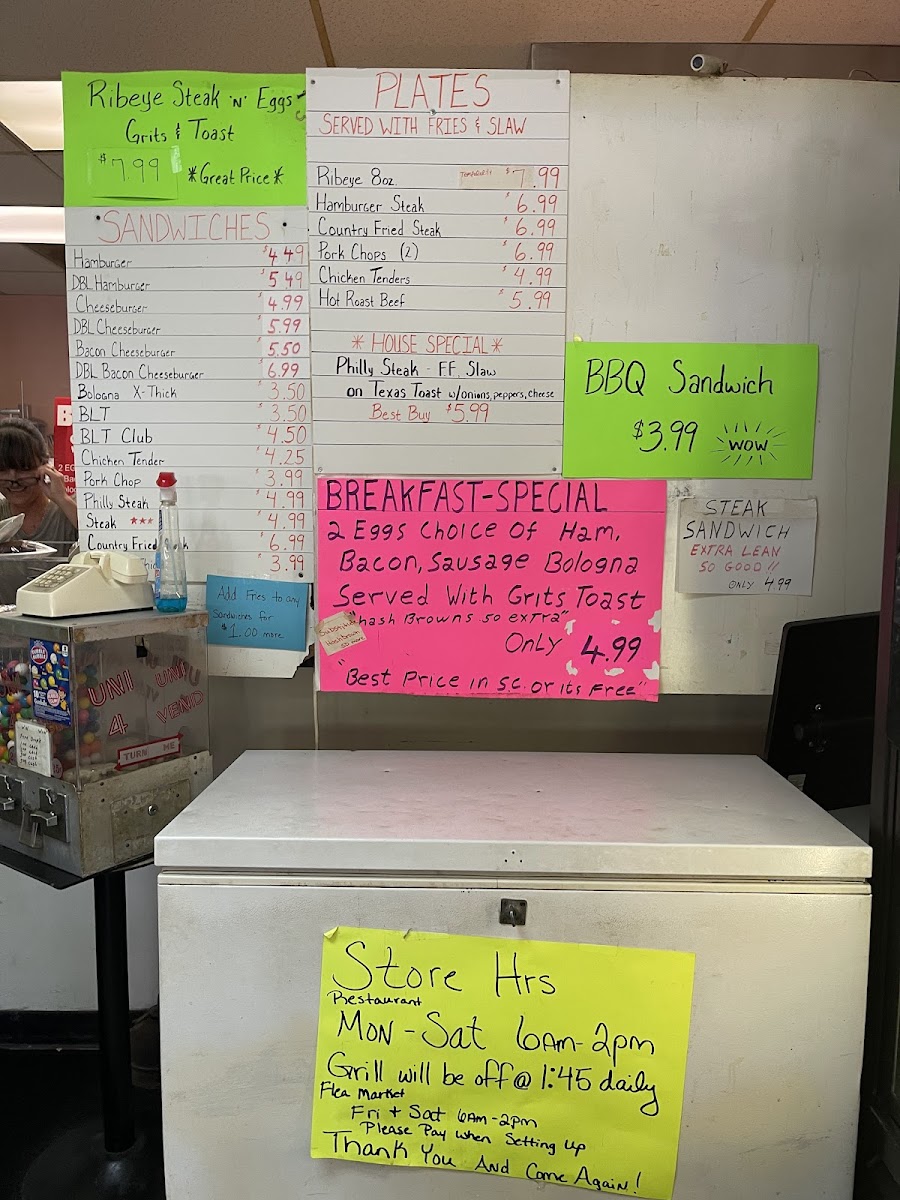 Ribeye Steak 'N' Eggs
Grits & Toast
$7.99 *Great Price*
SANDWICHES
Hamburger $4.49
DBL Hamburger $5.49
Cheeseburger $4.99
DBL Cheeseburger $5.99
Bacon Cheeseburger $5.50
DBL Bacon Cheeseburger $6.99
Bologna X-Thick $3.50
BLT $3.50
BLT Club $4.50
Chicken Tender $4.25
Pork Chop $3.99
Philly Steak $4.99
Steak *** $4.99
Country Fried $6.99
$3.99
Add Fries to any
Sandwiches for
$1.00 more
PLATES
SERVED WITH FRIES & SLAW
Ribeye 8oz. $7.99
Hamburger Steak $6.99
Country Fried Steak $6.99
Pork Chops (2) $6.99
Chicken Tenders $4.99
Hot Roast Beef $5.99
* HOUSE SPECIAL *
Philly Steak - FF, Slaw
on Texas Toast w/onions, peppers, cheese
Best Buy $5.99
BREAKFAST-SPECIAL
2 Eggs Choice Of Ham,
Bacon, Sausage Bologna
Served With Grits Toast
"hash Browns 50 extra"
Only 4.99
"Best Price in S.C. or its Free"
BBQ Sandwich
$3.99 WOW
STEAK
SANDWICH
EXTRA LEAN
SO GOOD!!
ONLY 4.99
UNI
4
UNI
VEND
TURN ME
Store Hrs
Restaurant
Mon-Sat 6am-2pm
Grill will be off @ 1:45 daily
Flea Market
Fri + Sat 6am-2pm
Please Pay when Setting Up
Thank You And Come Again!